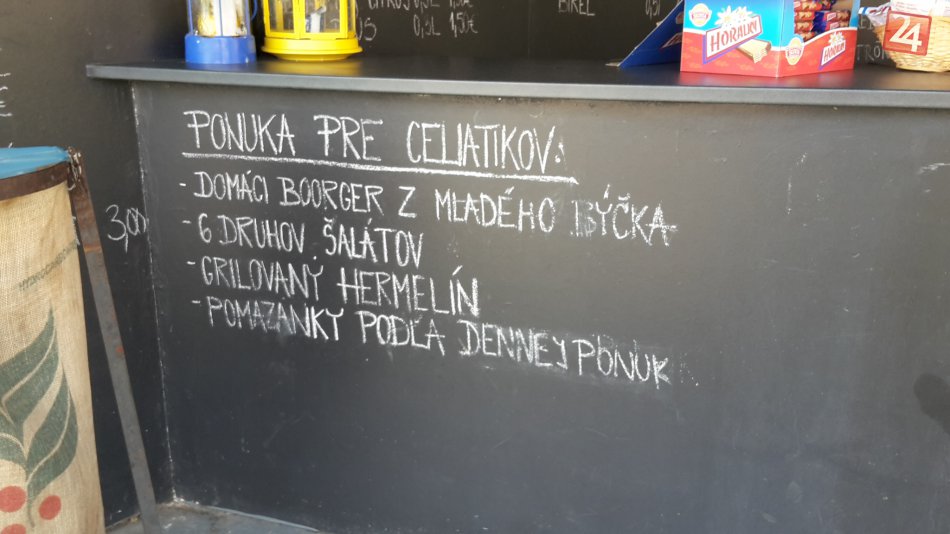 0,3L 1,50€
0,5L
HORALKY
24
PONUKA PRE CELIATIKOV:
- DOMÁCI BOORGER Z MLADÉHO BÝČKA
- 6 DRUHOV ŠALÁTOV
- GRILOVANÝ HERMELÍN
- POMAZANKY PODĽA DENNEJ PONUK
3,00